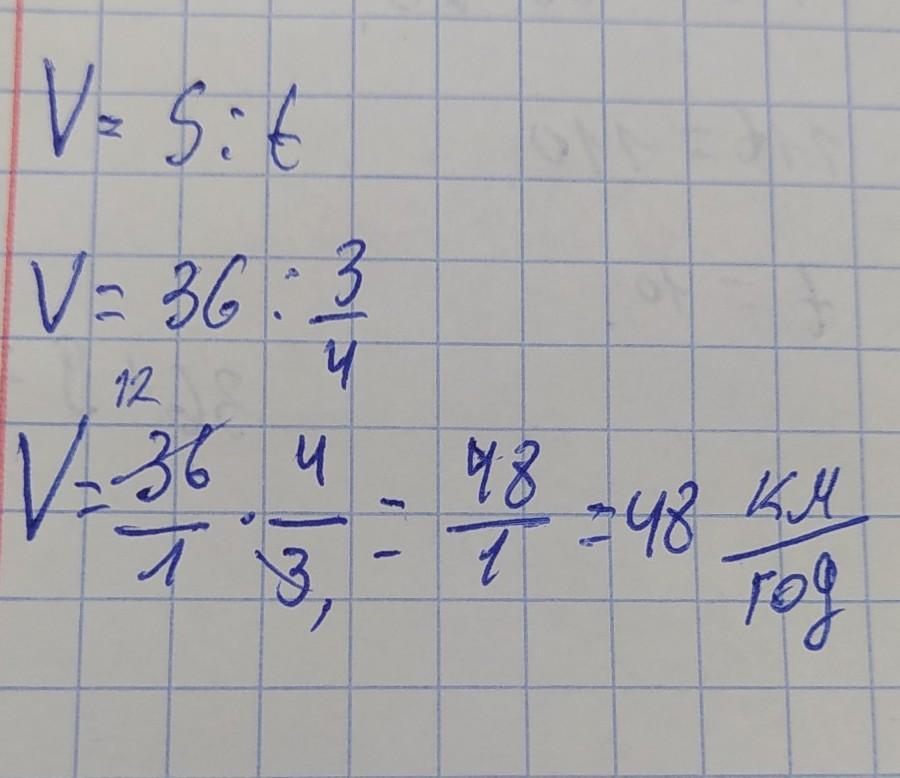 V = S : t
V = 36 : 3/4
12
V = 36/1 · 4/3 = 48/1 = 48 км/год